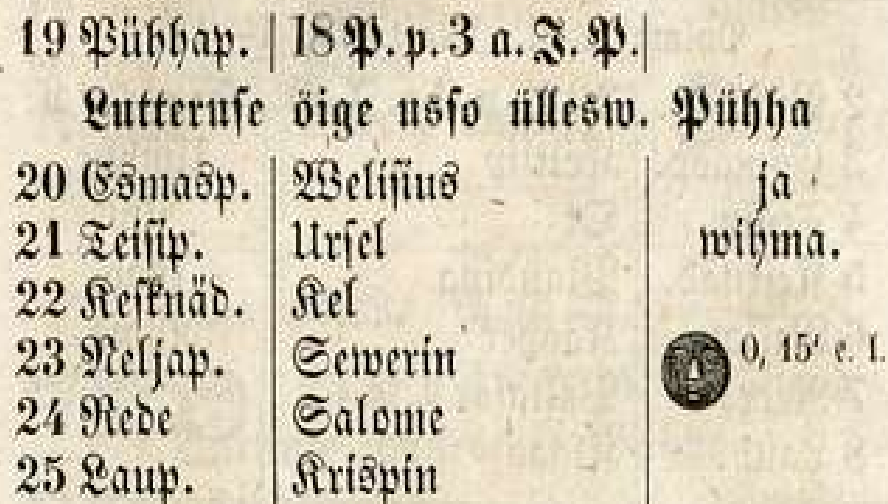 19 Pühhap. 18 P. p. 3 a. J. P.
Lutteruse öige usso üllesw. Pühha
20 Esmasp. Welisius ja
21 Teisip. Ursel wihma.
22 Kesknäd. Kel
23 Neljap. Sewerin 0, 15' e. l.
24 Rede Salome
25 Laup. Krispin